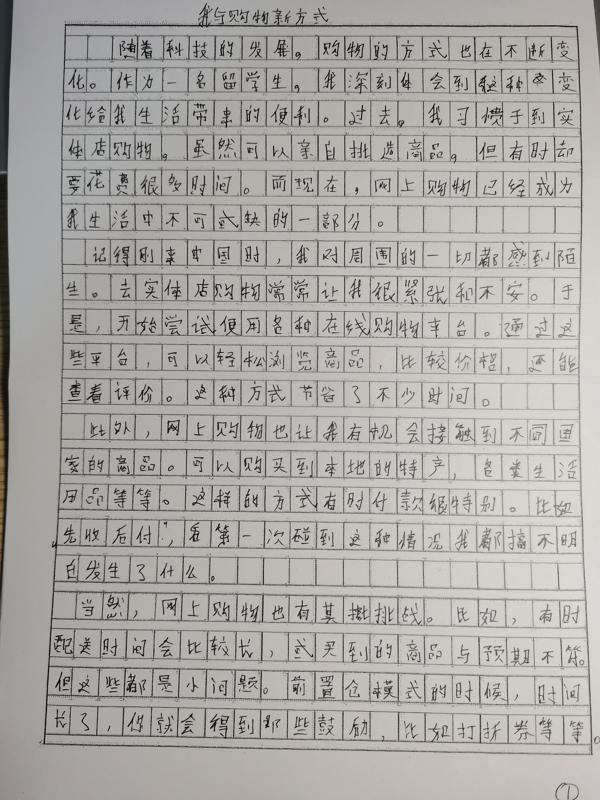 我与购物新方式
随着科技的发展。购物的方式也在不断变
化。作为一名留学生。我深刻体会到这种变
化给我生活带来的便利。过去。我习惯于到实
体店购物。虽然可以亲自挑选商品。但有时却
要花费很多时间。而现在,网上购物已经成为
我生活中不可或缺的一部分。
记得刚来中国时,我对周围的一切都感到陌
生。去实体店购物常常让我很紧张和不安。于
是,开始尝试使用各种在线购物平台。通过这
些平台,可以轻松浏览商品,比较价格,还能
查看评价。这种方式节省了不少时间。
此外,网上购物也让我有机会接触到不同国
家的商品。可以购买到本地的特产,各类生活
用品等等。这样的方式有时付款很特别。比如
先收后付",看第一次碰到这种情况我都搞不明
白发生了什么。
当然,网上购物也有其挑战。比如,有时
配送时间会比较长,或买到的商品与预期不符。
但这些都是小问题。前置仓模式的时候,时间
长了,你就会得到那些鼓励,比如打折券等等。
①